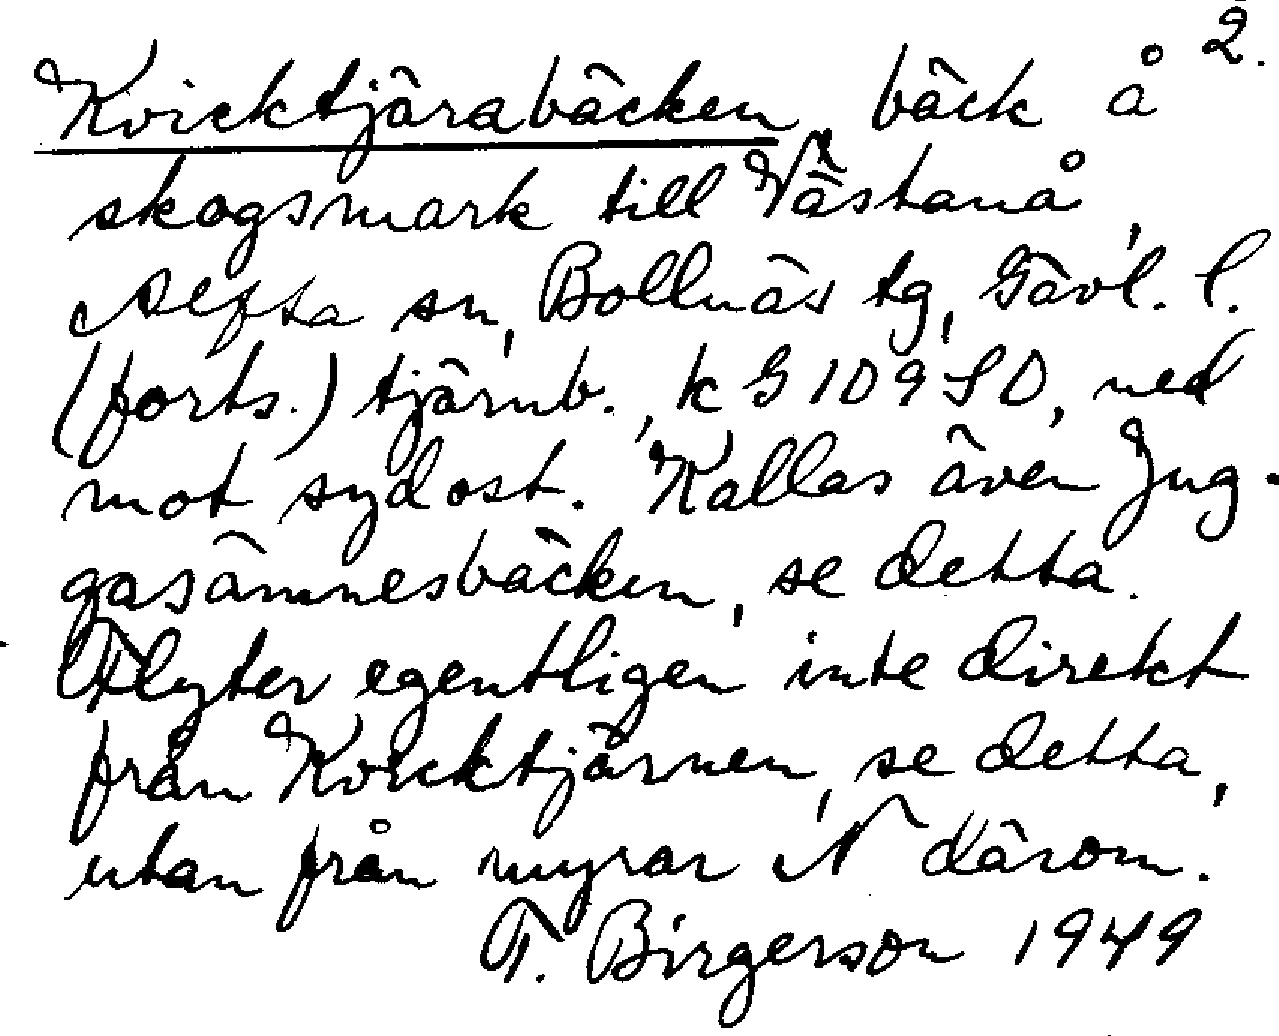 2.
Kvicktjärabäcken, bäck å
skogsmark till Västanå,
Alfta sn, Bollnäs tg, Gävl. l.
(forts.) tjärnb., k G 109 SO, ned
mot sydost. Kallas även Jug-
gasämnesbäcken, se detta.
Flyter egentligen inte direkt
från Kvicktjärnen, se detta,
utan från myrar N därom.
T. Birgerson 1949